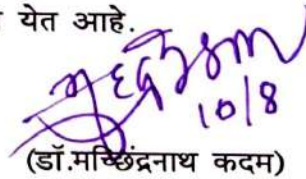 येत आहे.
10/8
(डॉ.मच्छिंद्रनाथ कदम)